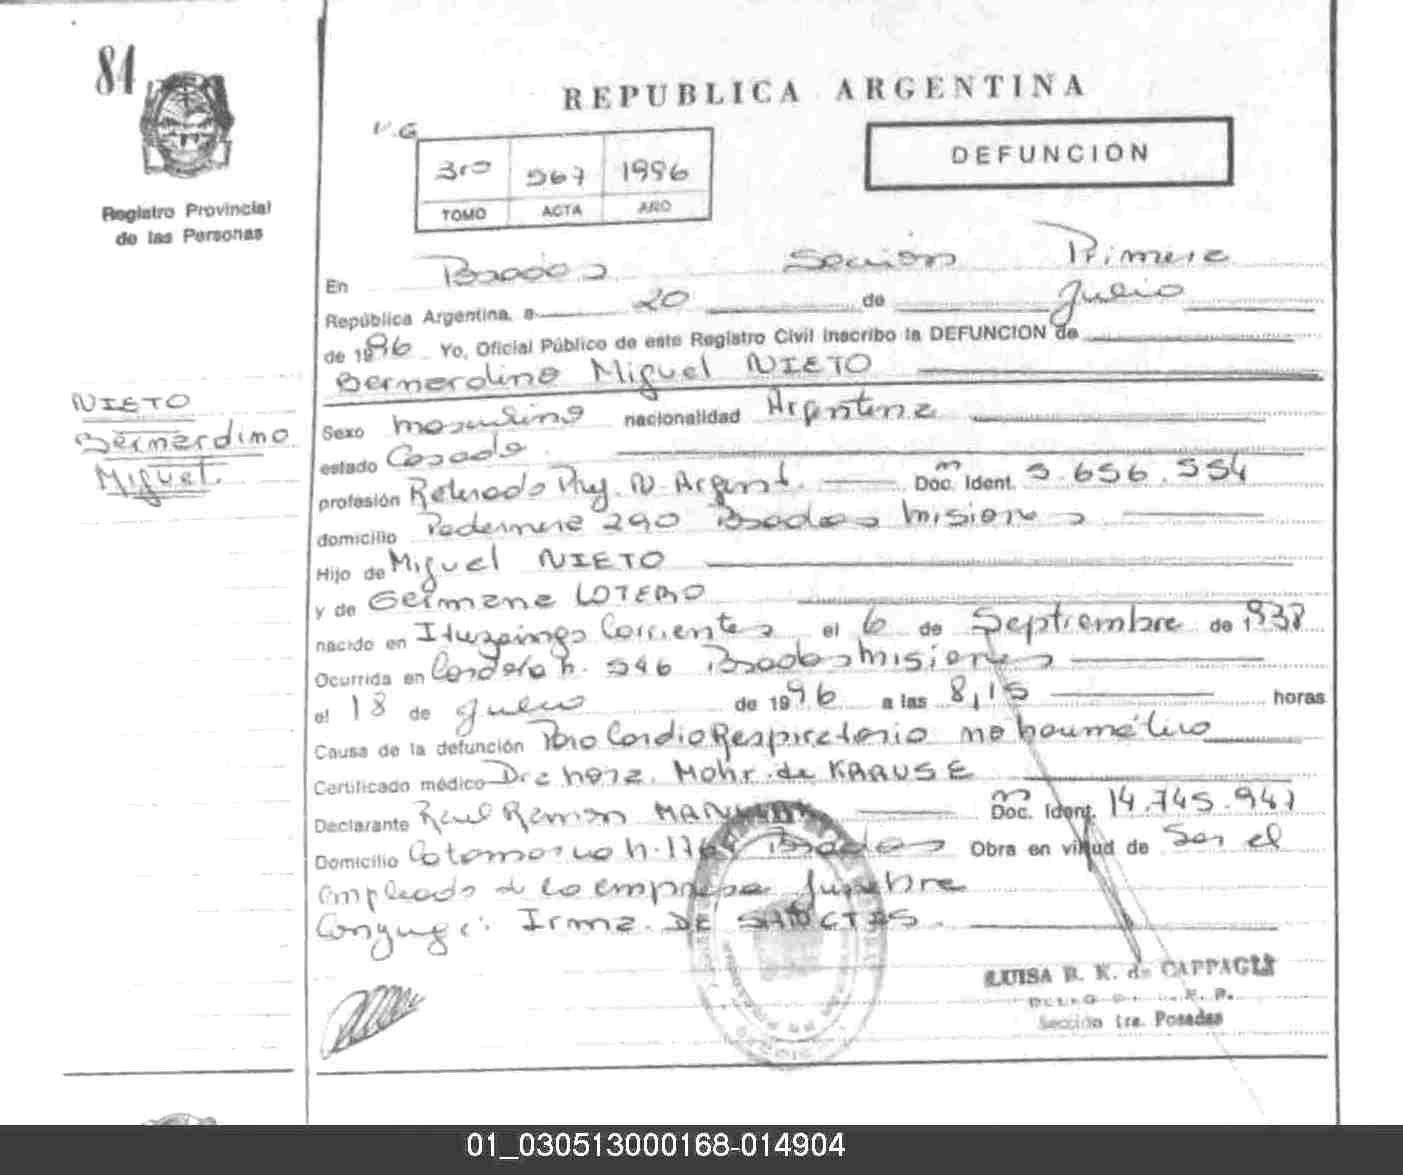 84
REPUBLICA ARGENTINA
V.G
3ro 567 1996
TOMO ACTA AÑO
DEFUNCION
Registro Provincial
de las Personas
En Posadas Sección Primera
República Argentina, a 20 de Julio
de 1996 Yo, Oficial Público de este Registro Civil inscribo la DEFUNCION de
Bernardino Miguel NIETO
NIETO
Bernardino
Miguel
Sexo masculino nacionalidad Argentina
estado Casado
profesión Retirado Pref. N. Argent. Doc. Ident. 5.656.554
domicilio Pedernera 290 Posadas Misiones
Hijo de Miguel NIETO
y de Germana LOTERO
nacido en Ituzaingo Corrientes el 6 de Septiembre de 1938
Ocurrida en Cordoba n. 546 Posadas Misiones
el 18 de Julio de 1996 a las 8,15 horas
Causa de la defunción Paro Cardio Respiratorio no traumático
Certificado médico Dra Nora Mohr de KRAUSE
Declarante Raul Ramon Doc. Ident. 14.745.947
Domicilio Posadas Obra en virtud de Ser el
empleado de la empresa funebre
Conyuge: Irma DE SANCTIS.
LUISA R. K. de CAPPAGLI
Sección 1ra. Posadas
01_030513000168-014904